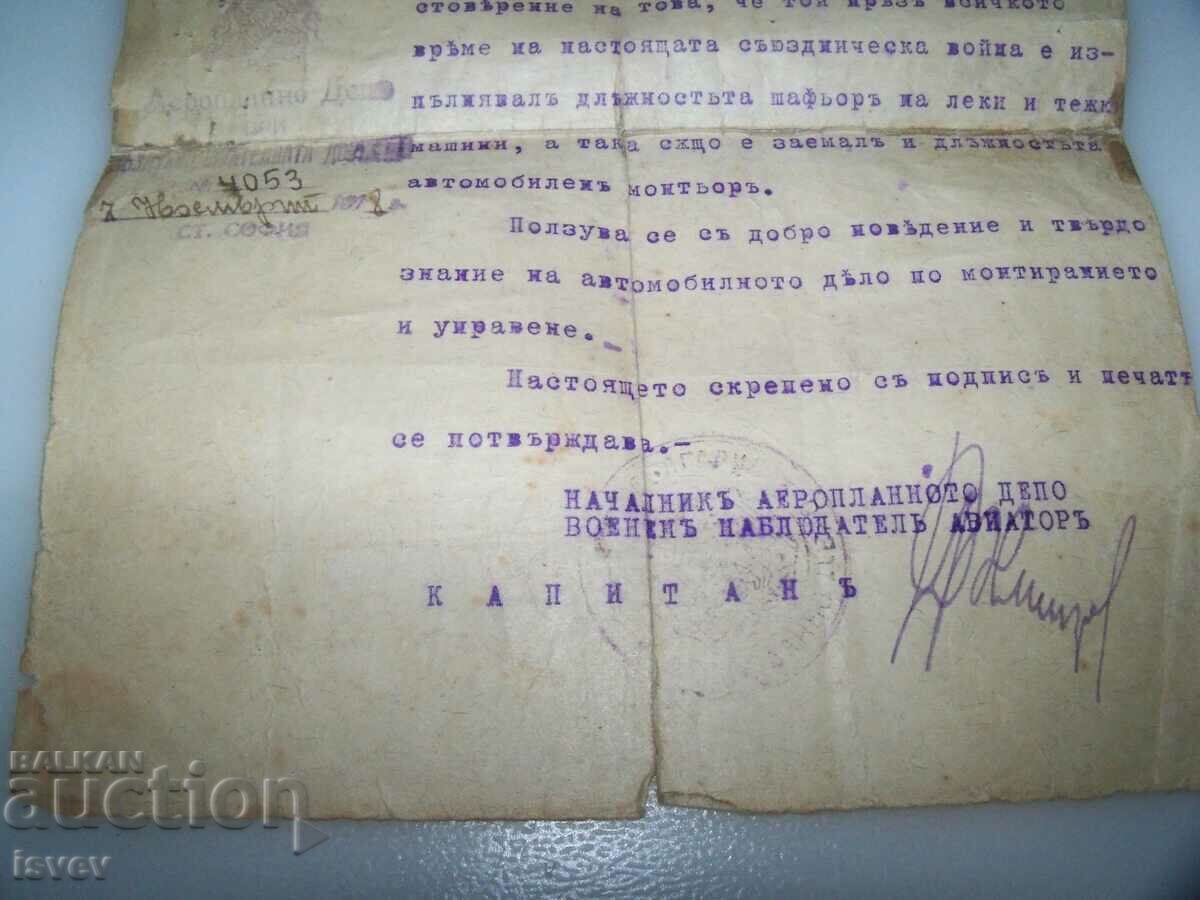 стовѣрение на това, че той прѣзъ всичкото
врѣме на настоящата съюздническа война е из-
пълнявалъ длъжностьта шафьоръ на леки и тежк
машини, а така сжщо е заемалъ и длъжностьта
автомобиленъ монтьоръ.
Аеропланно Депо
№ 4053
7 Ноемврий 1918 г.
ст. СОФИЯ
Ползува се съ добро новѣдение и твърдо
знание на автомобилното дѣло по монтиранието
и управене.
Настоящето скрепено съ подписъ и печатъ
се потвърждава.-
НАЧАЛНИКЪ АЕРОПЛАННОТО ДЕПО
ВОЕНЕНЪ НАБЛЮДАТЕЛЬ АВИАТОРЪ
КАПИТАНЪ
BALKAN
auction
isvev